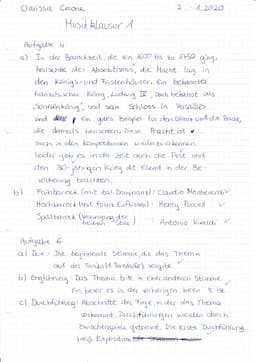 Clarissa Cerone 2. .1.2020
Musikklausur 1
Aufgabe 4
a) In der Barockzeit, die von 1600 bis zu 1750 ging,
herrschte der Absolutismus, die Macht lag in
den Königs- und Fürstenhäuser. Ein bekannter
französischer König, Ludwig IV, auch bekannt als
"Sonnenkönig", und sein Schloss in Versailles
sind ein gutes Beispiel für den Glanz und die Pracht,
die damals herrschten. Diese Pracht ist
auch in den Kompositionen wiederzuerkennen.
Leider gab es in der Zeit auch die Pest und
den 30-jährigen Krieg die Elend in der Be-
völkerung brachten.
b) Frühbarock (mit ital. Dominanz): Claudio Monteverdi
Hochbarock (mit franz. Einflüssen): Henry Purcell
Spätbarock (Vereinigung der
beiden Stile) : Antonio Vivaldi
Aufgabe 6
a) Dux: Die beginnende Stimme, die das Thema
auf der Tonika (Tonstufe) vorgibt
b) Engführung: Das Thema tritt in einer anderen Stimme
ein, bevor es in der vorherigen beendet ist.
c) Durchführung: Abschnitte der Fuge, in der das Thema
vorkommt. Durchführungen werden durch
Zwischenspiele getrennt. Die erste Durchführung
heißt Exposition